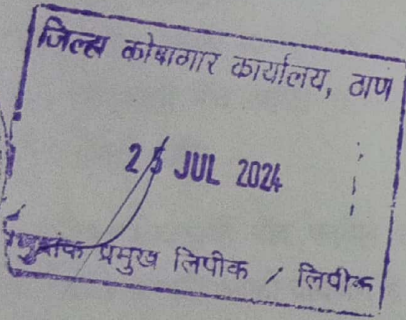 जिल्हा कोषागार कार्यालय, ठाणे
25 JUL 2024
प्रमुख लिपीक / लिपीक